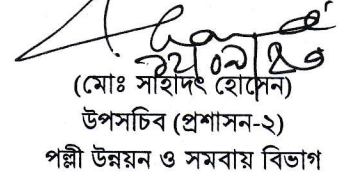 (মোঃ সাহাদৎ হোসেন)
উপসচিব (প্রশাসন-২)
পল্লী উন্নয়ন ও সমবায় বিভাগ